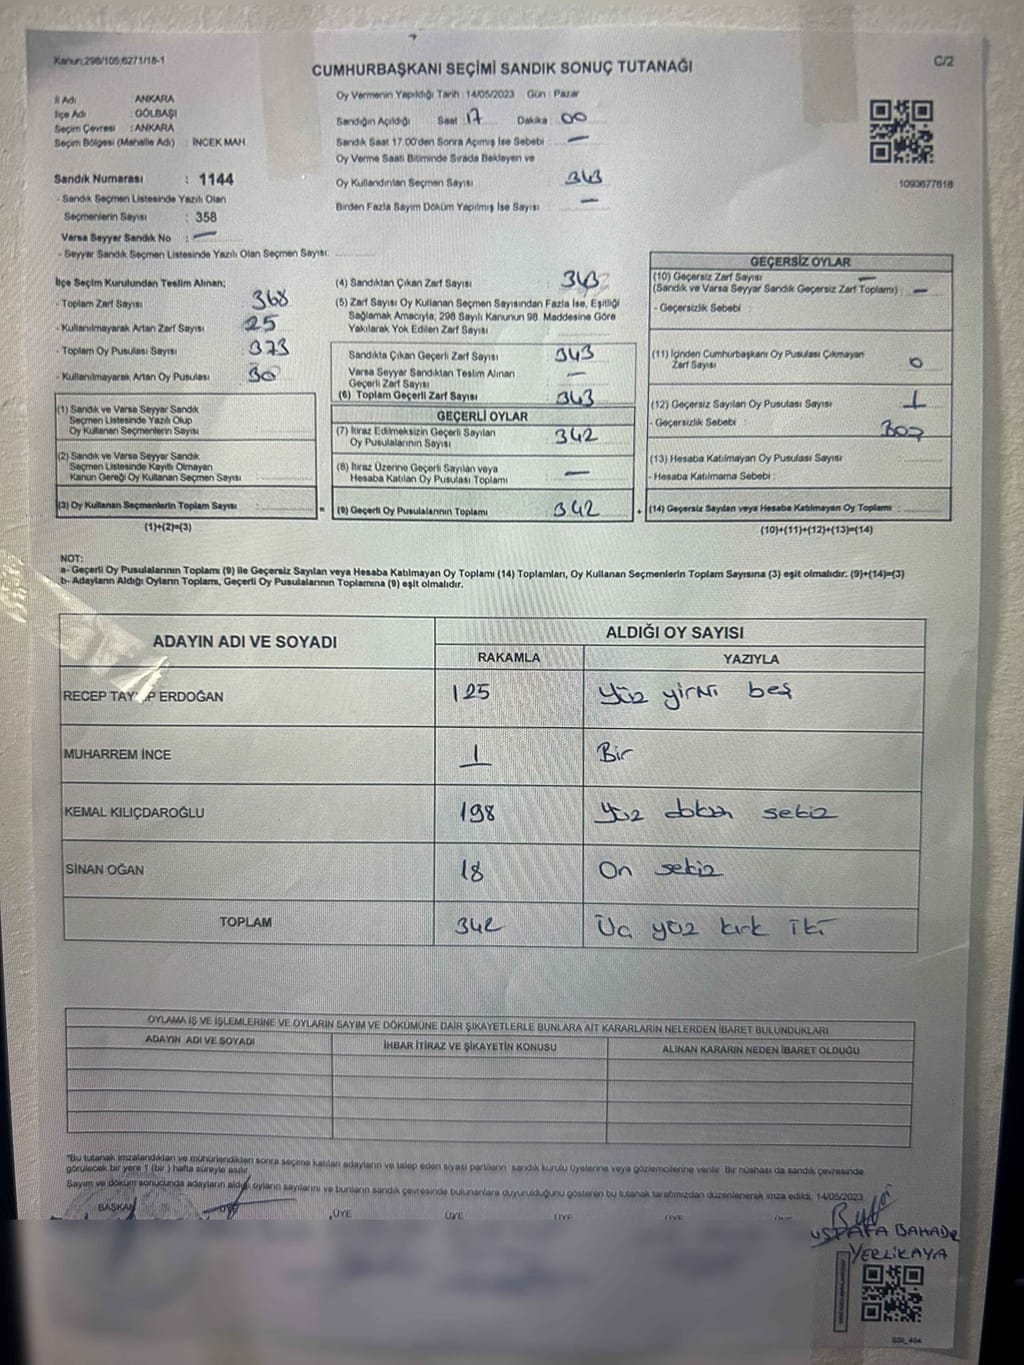 Kanun:298/105;6271/18-1
C/2
CUMHURBAŞKANI SEÇİMİ SANDIK SONUÇ TUTANAĞI
İl Adı : ANKARA
İlçe Adı : GÖLBAŞI
Seçim Çevresi : ANKARA
Seçim Bölgesi (Mahalle Adı) : İNCEK MAH.
Sandık Numarası : 1144
- Sandık Seçmen Listesinde Yazılı Olan
Seçmenlerin Sayısı : 358
Varsa Seyyar Sandık No : —
- Seyyar Sandık Seçmen Listesinde Yazılı Olan Seçmen Sayısı:
Oy Vermenin Yapıldığı Tarih : 14/05/2023 Gün : Pazar
Sandığın Açıldığı Saat : 17 Dakika : 00
Sandık Saat 17:00'den Sonra Açımış İse Sebebi : —
Oy Verme Saati Bitiminde Sırada Bekleyen ve
Oy Kullandırılan Seçmen Sayısı : 343
Birden Fazla Sayım Döküm Yapılmış İse Sayısı : —
1093677618
İlçe Seçim Kurulundan Teslim Alınan;
- Toplam Zarf Sayısı : 368
- Kullanılmayarak Artan Zarf Sayısı : 25
- Toplam Oy Pusulası Sayısı : 373
- Kullanılmayarak Artan Oy Pusulası : 30
(1) Sandık ve Varsa Seyyar Sandık
Seçmen Listesinde Yazılı Olup
Oy Kullanan Seçmenlerin Sayısı :
(2) Sandık ve Varsa Seyyar Sandık
Seçmen Listesinde Kayıtlı Olmayan
Kanun Gereği Oy Kullanan Seçmen Sayısı :
(3) Oy Kullanan Seçmenlerin Toplam Sayısı :
(1)+(2)=(3)
(4) Sandıktan Çıkan Zarf Sayısı : 343
(5) Zarf Sayısı Oy Kullanan Seçmen Sayısından Fazla İse, Eşitliği
Sağlamak Amacıyla; 298 Sayılı Kanunun 98. Maddesine Göre
Yakılarak Yok Edilen Zarf Sayısı :
Sandıkta Çıkan Geçerli Zarf Sayısı : 343
Varsa Seyyar Sandıktan Teslim Alınan
Geçerli Zarf Sayısı : —
(6) Toplam Geçerli Zarf Sayısı : 343
GEÇERLİ OYLAR
(7) İtiraz Edilmeksizin Geçerli Sayılan
Oy Pusulalarının Sayısı : 342
(8) İtiraz Üzerine Geçerli Sayılan veya
Hesaba Katılan Oy Pusulası Toplamı : —
= (9) Geçerli Oy Pusulalarının Toplamı : 342
GEÇERSİZ OYLAR
(10) Geçersiz Zarf Sayısı —
(Sandık ve Varsa Seyyar Sandık Geçersiz Zarf Toplamı) : —
- Geçersizlik Sebebi :
(11) İçinden Cumhurbaşkanı Oy Pusulası Çıkmayan
Zarf Sayısı : 0
(12) Geçersiz Sayılan Oy Pusulası Sayısı : 1
- Geçersizlik Sebebi :
(13) Hesaba Katılmayan Oy Pusulası Sayısı :
- Hesaba Katılmama Sebebi :
+ (14) Geçersiz Sayılan veya Hesaba Katılmayan Oy Toplamı :
(10)+(11)+(12)+(13)=(14)
NOT:
a- Geçerli Oy Pusulalarının Toplamı (9) ile Geçersiz Sayılan veya Hesaba Katılmayan Oy Toplamı (14) Toplamları, Oy Kullanan Seçmenlerin Toplam Sayısına (3) eşit olmalıdır. (9)+(14)=(3)
b- Adayların Aldığı Oyların Toplamı, Geçerli Oy Pusulalarının Toplamına (9) eşit olmalıdır.
ADAYIN ADI VE SOYADI ALDIĞI OY SAYISI
RAKAMLA YAZIYLA
RECEP TAY P ERDOĞAN 125 yüz yirmi beş
MUHARREM İNCE 1 Bir
KEMAL KILIÇDAROĞLU 198 yüz doksan sekiz
SİNAN OĞAN 18 On sekiz
TOPLAM 342 Üç yüz kırk iki
OYLAMA İŞ VE İŞLEMLERİNE VE OYLARIN SAYIM VE DÖKÜMÜNE DAİR ŞİKAYETLERLE BUNLARA AİT KARARLARIN NELERDEN İBARET BULUNDUKLARI
ADAYIN ADI VE SOYADI İHBAR İTİRAZ VE ŞİKAYETİN KONUSU ALINAN KARARIN NEDEN İBARET OLDUĞU
*Bu tutanak imzalandıktan ve mühürlendikten sonra seçime katılan adayların ve talep eden siyasi partilerin sandık kurulu üyelerine veya gözlemcilerine verilir. Bir nüshası da sandık çevresinde
görülecek bir yere 1 (bir) hafta süreyle asılır.
Sayım ve döküm sonucunda adayların aldığı oyların sayılarını ve bunların sandık çevresinde bulunanlara duyurulduğunu gösteren bu tutanak tarafımızdan düzenlenerek imza edildi. 14/05/2023
BAŞKAN ÜYE ÜYE ÜYE ÜYE ÜYE
USTAFA BAHADIR
YERLİKAYA